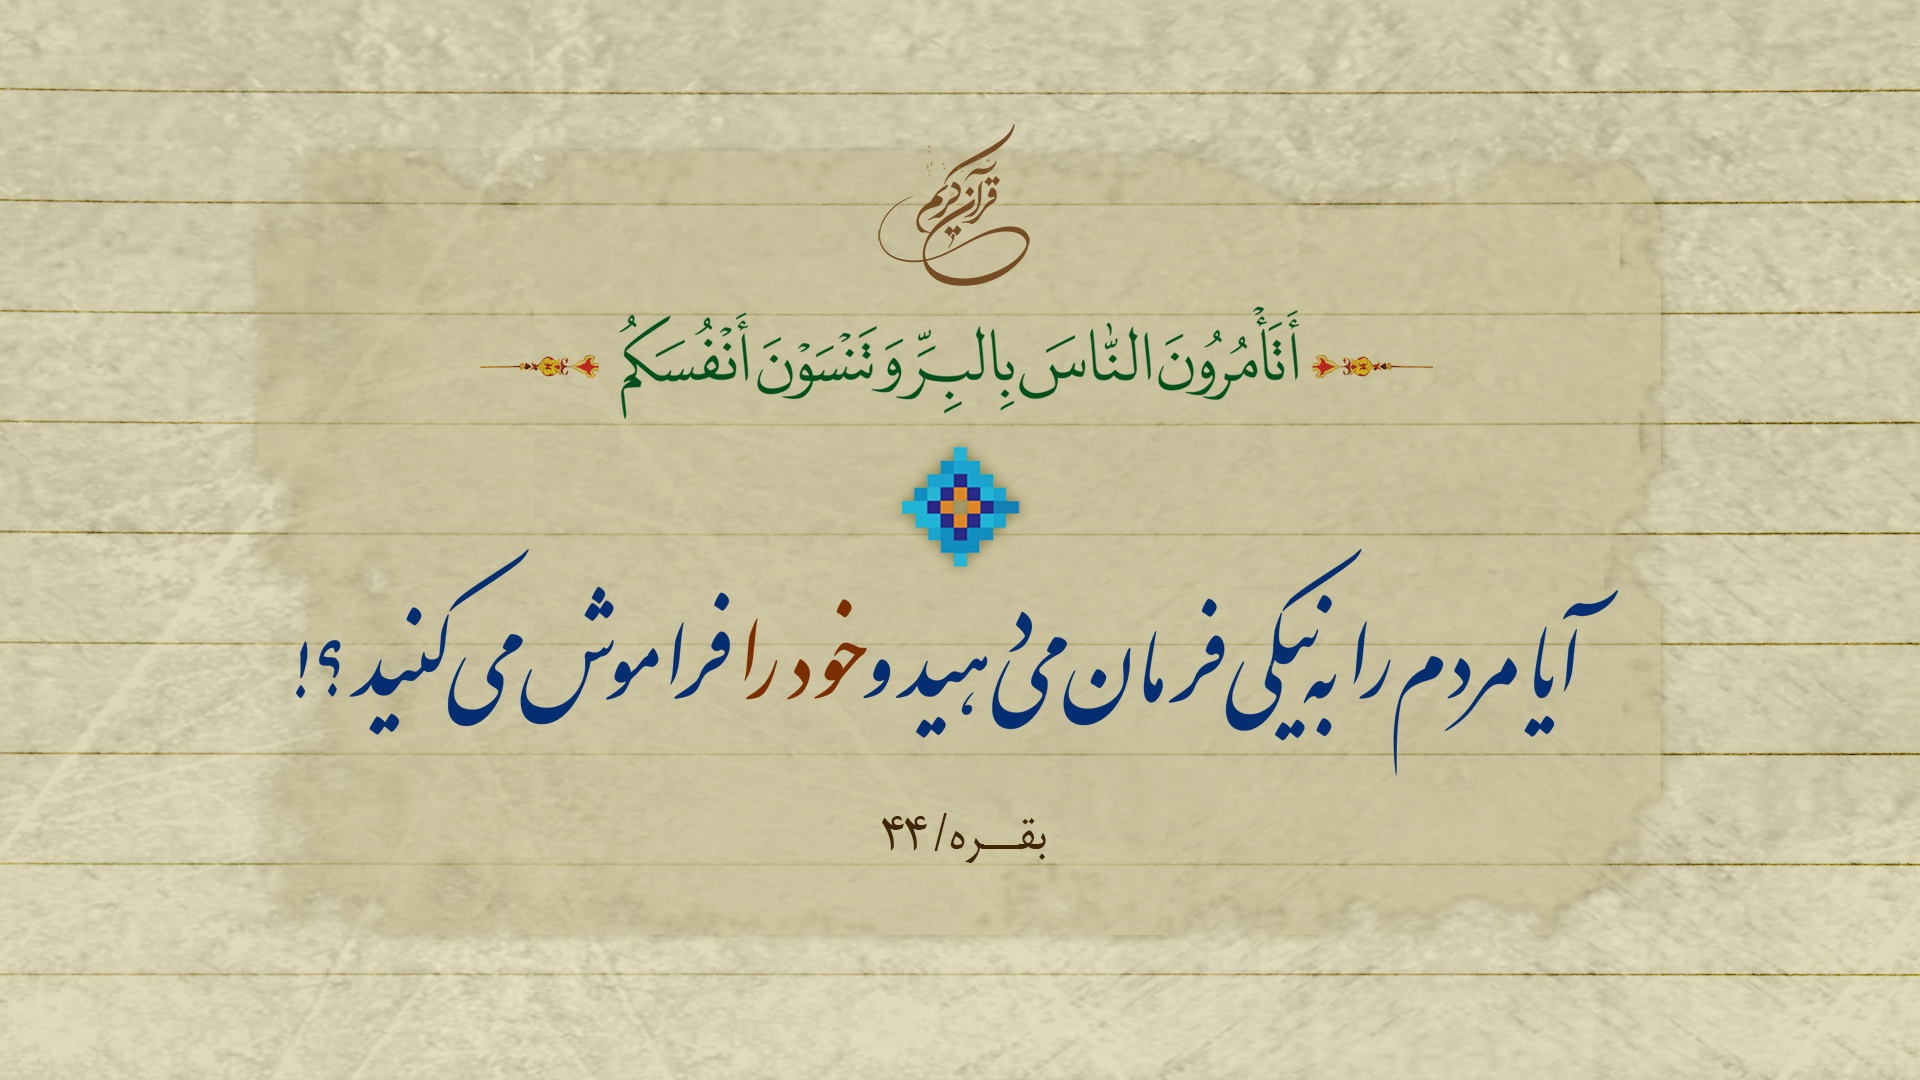 قرآن کریم
أَتَأْمُرُونَ النَّاسَ بِالبِرِّ وَ تَنْسَوْنَ أَنْفُسَكُمُ
آیا مردم را به نیکی فرمان می‌دهید و خود را فراموش می‌کنید ؟!
بقـــره/ ۴۴